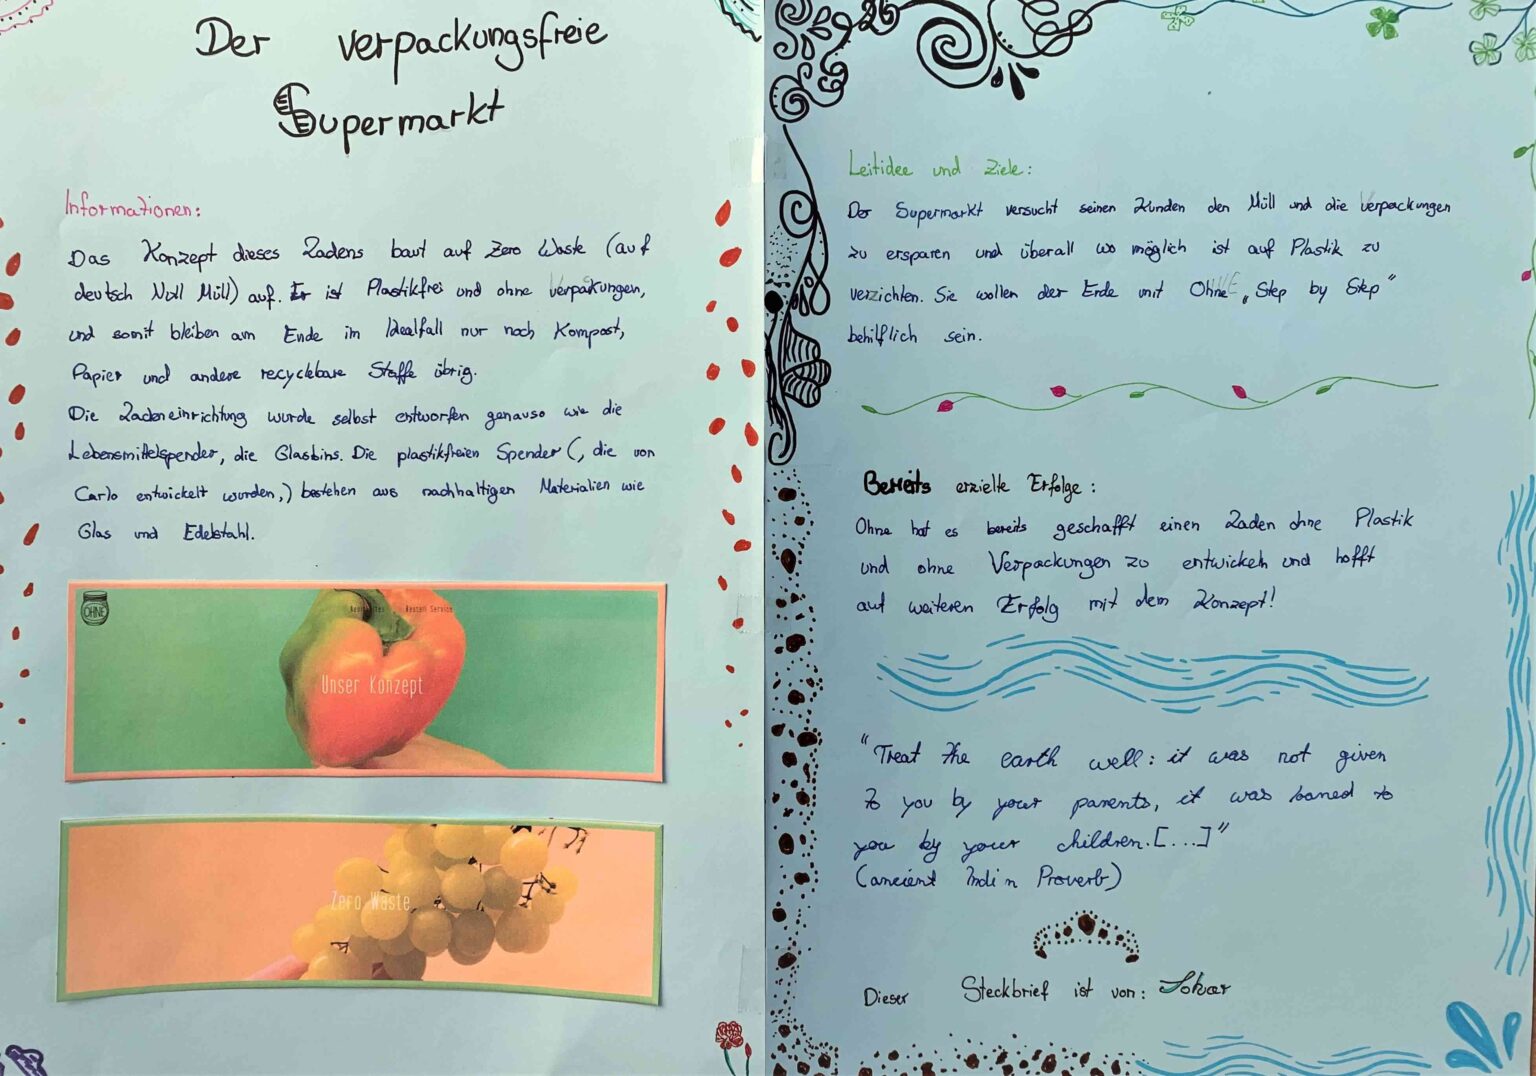 Der verpackungsfreie
Supermarkt
Informationen:
Das Konzept dieses Ladens baut auf Zero Waste (auf
deutsch Null Müll) auf. Er ist Plastikfrei und ohne Verpackungen,
und somit bleiben am Ende im Idealfall nur noch Kompost,
Papier und andere recyclebare Stoffe übrig.
Die Ladeneinrichtung wurde selbst entworfen genauso wie die
Lebensmittelspender, die Glasbins. Die plastikfreien Spender (, die von
Carlo entwickelt wurden,) bestehen aus nachhaltigen Materialien wie
Glas und Edelstahl.
OHNE
Bestell Service
Unser Konzept
Zero Waste
Leitidee und Ziele:
Der Supermarkt versucht seinen Kunden den Müll und die Verpackungen
zu ersparen und überall wo möglich ist auf Plastik zu
verzichten. Sie wollen der Erde mit Ohne „Step by Step“
behilflich sein.
Bereits erzielte Erfolge:
Ohne hat es bereits geschafft einen Laden ohne Plastik
und ohne Verpackungen zu entwickeln und hofft
auf weiteren Erfolg mit dem Konzept!
"Treat the earth well: it was not given
to you by your parents, it was loaned to
you by your children.[...]"
(ancient Indi n Proverb)
Dieser Steckbrief ist von: